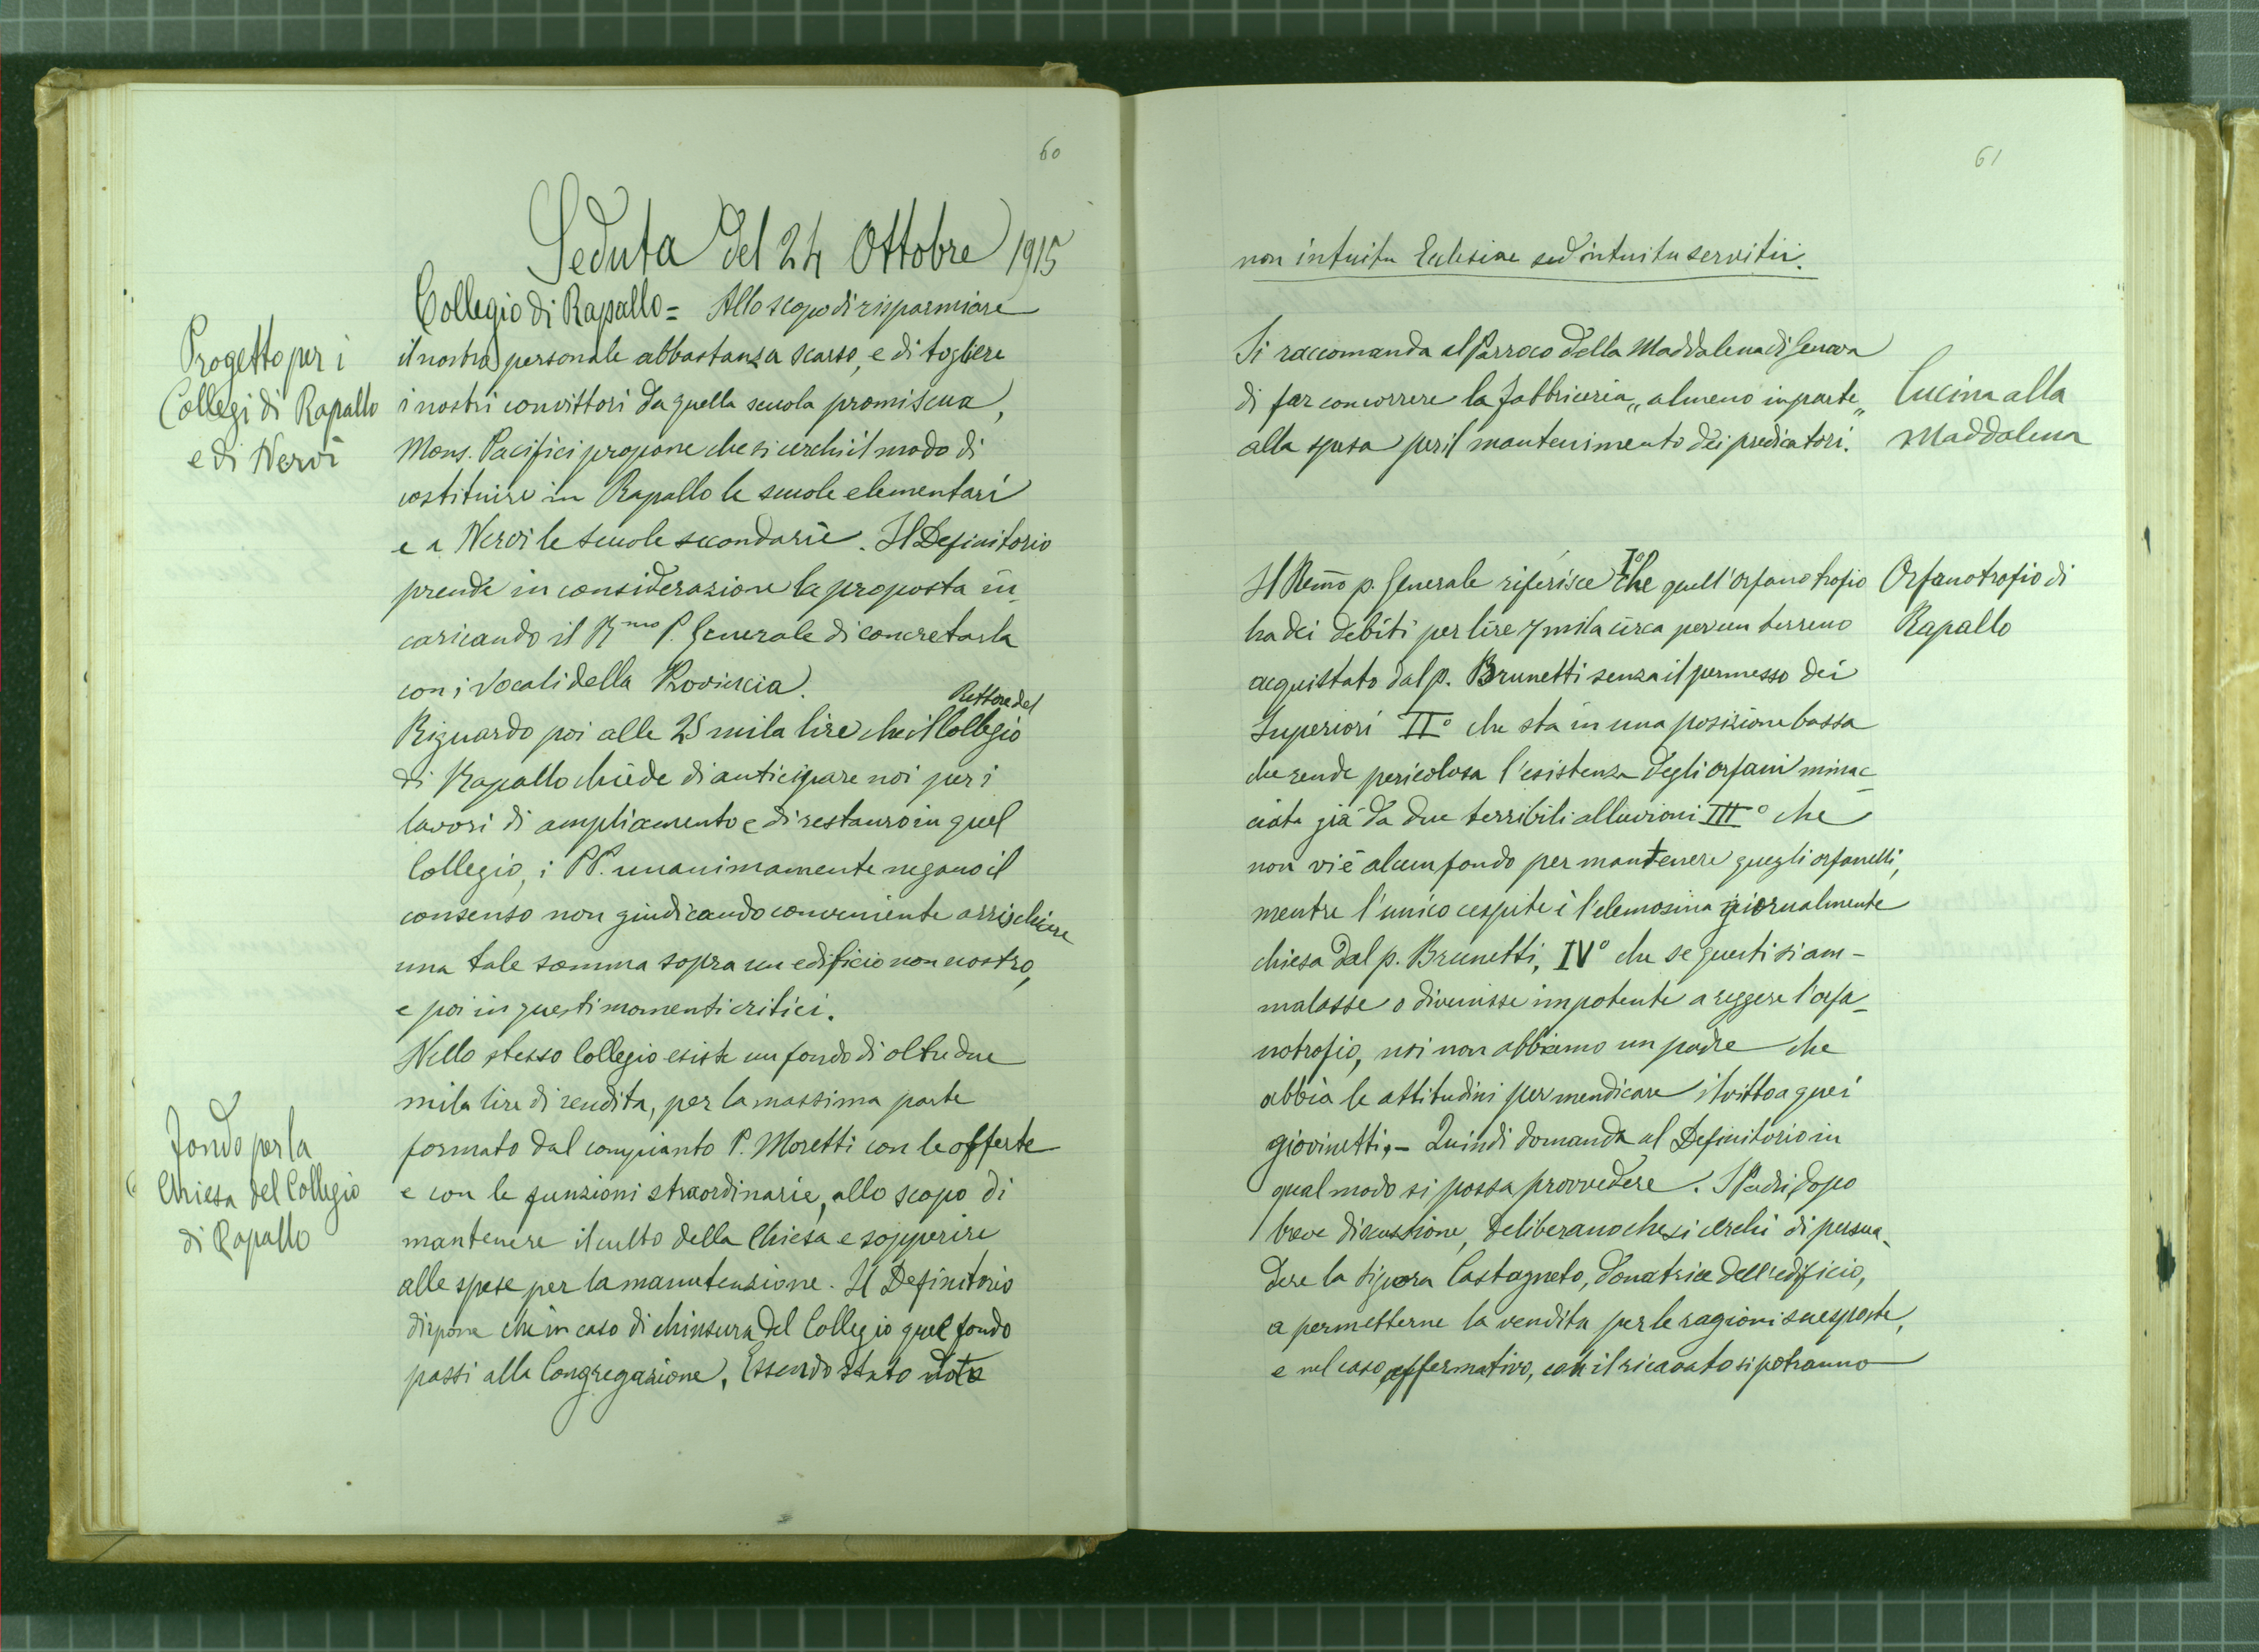 60
Seduta del 24 Ottobre 1915
Progetto per i
Collegi di Rapallo
e di Nervi
Collegio di Rapallo = Allo scopo di risparmiare
il nostro personale abbastanza scarso, e di togliere
i nostri convittori da quella scuola promiscua,
Mons. Pacifici propone che si cerchi il modo di
costituire in Rapallo le scuole elementari
e a Nervi le scuole secondarie. Il Definitorio
prende in considerazione la proposta in-
caricando il R.mo P. Generale di concretarla
con i Vocali della Provincia.
Rettore del
Riguardo poi alle 25 mila lire che il Collegio
di Rapallo chiede di anticipare noi per i
lavori di ampliamento e di restauro in quel
Collegio, i PP. unanimamente negano il
consenso non giudicando conveniente arrischiare
una tale somma sopra un edificio non nostro,
e poi in questi momenti critici.
Fondo per la
Chiesa del Collegio
di Rapallo
Nello stesso Collegio esiste un fondo di oltre due
mila lire di rendita, per la massima parte
formato dal compianto P. Moretti con le offerte
e con le funzioni straordinarie, allo scopo di
mantenere il culto della Chiesa e sopperire
alle spese per la manutenzione. Il Definitorio
dispone che in caso di chiusura del Collegio quel fondo
passi alla Congregazione. Essendo stato dato
61
non intuitu Ecclesiae sed intuitu servitii.
Si raccomanda al Parroco della Maddalena di Genova
di far concorrere la fabbriceria „almeno in parte„
alla spesa per il mantenimento dei predicatori.
Cucina alla
Maddalena
Il Remo p. Generale riferisce I° che quell'orfanotrofio
ha dei debiti per lire 7 mila circa per un terreno
acquistato dal p. Brunetti senza il permesso dei
Superiori II° che sta in una posizione bassa
che rende pericolosa l'esistenza degli orfani minac-
ciata già da due terribili alluvioni III° che
non vi è alcun fondo per mantenere quegli orfanelli,
mentre l'unico cespite è l'elemosina giornalmente
chiesa dal p. Brunetti, IV° che se questi si am-
malasse o divenisse impotente a reggere l'orfa-
notrofio, noi non abbiamo un padre che
abbia le attitudini per mendicare il vitto a quei
giovinetti, - Quindi domanda al Definitorio in
qual modo si possa provvedere. I Padri, dopo
breve discussione, deliberano che si cerchi di persua-
dere la signora Castagneto, donatrice dell'edificio,
a permetterne la vendita per le ragioni suesposte,
e nel caso affermativo, con il ricavato si potranno
Orfanotrofio di
Rapallo